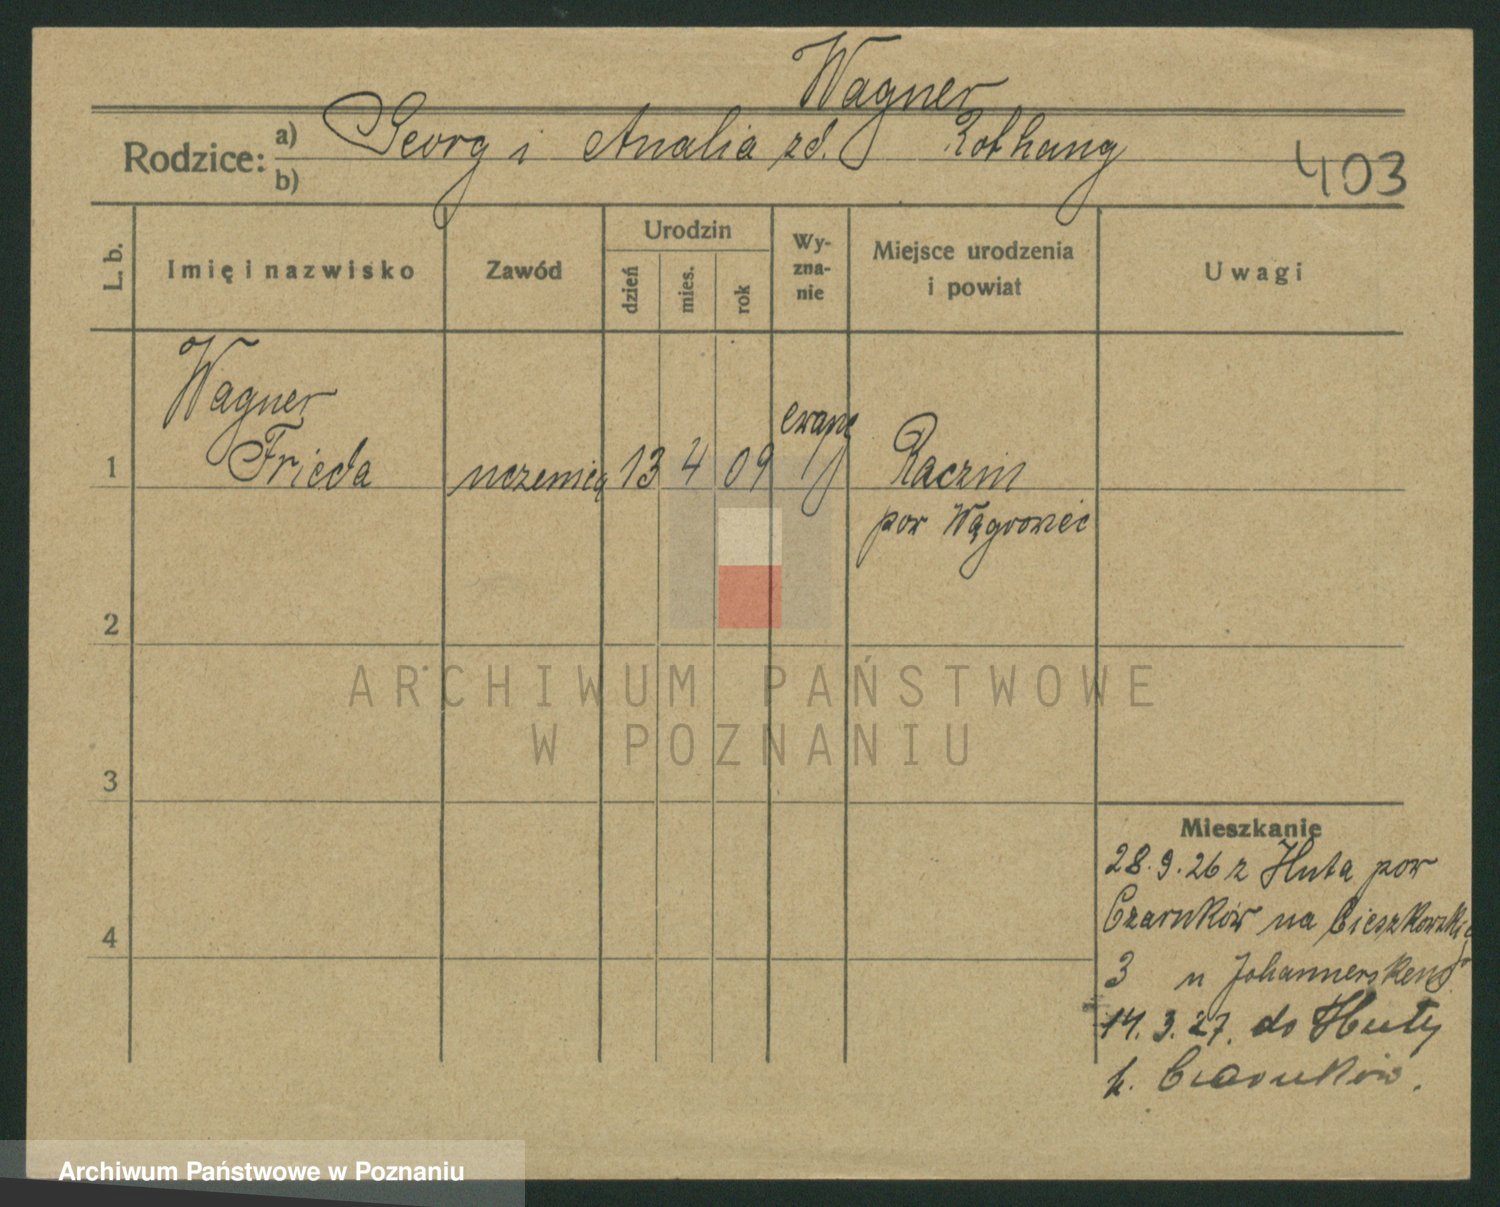 Wagner
Rodzice: a) Georg i Analia zd. Rothang
b)
403
L. b.
Imię i nazwisko
Zawód
Urodzin
dzień
mies.
rok
Wy-
zna-
nie
Miejsce urodzenia
i powiat
Uwagi
Wagner
1 Frieda uczenica 13 4 09 ewang Raczin
pow Wągrowiec
2
3
4
Mieszkanie
28.9.26 z Huta pow
Czarnków na Cieszkowskiego
3 u
14.3.27. do Huty
p. Czarnków.
ARCHIWUM PAŃSTWOWE
W POZNANIU
Archiwum Państwowe w Poznaniu